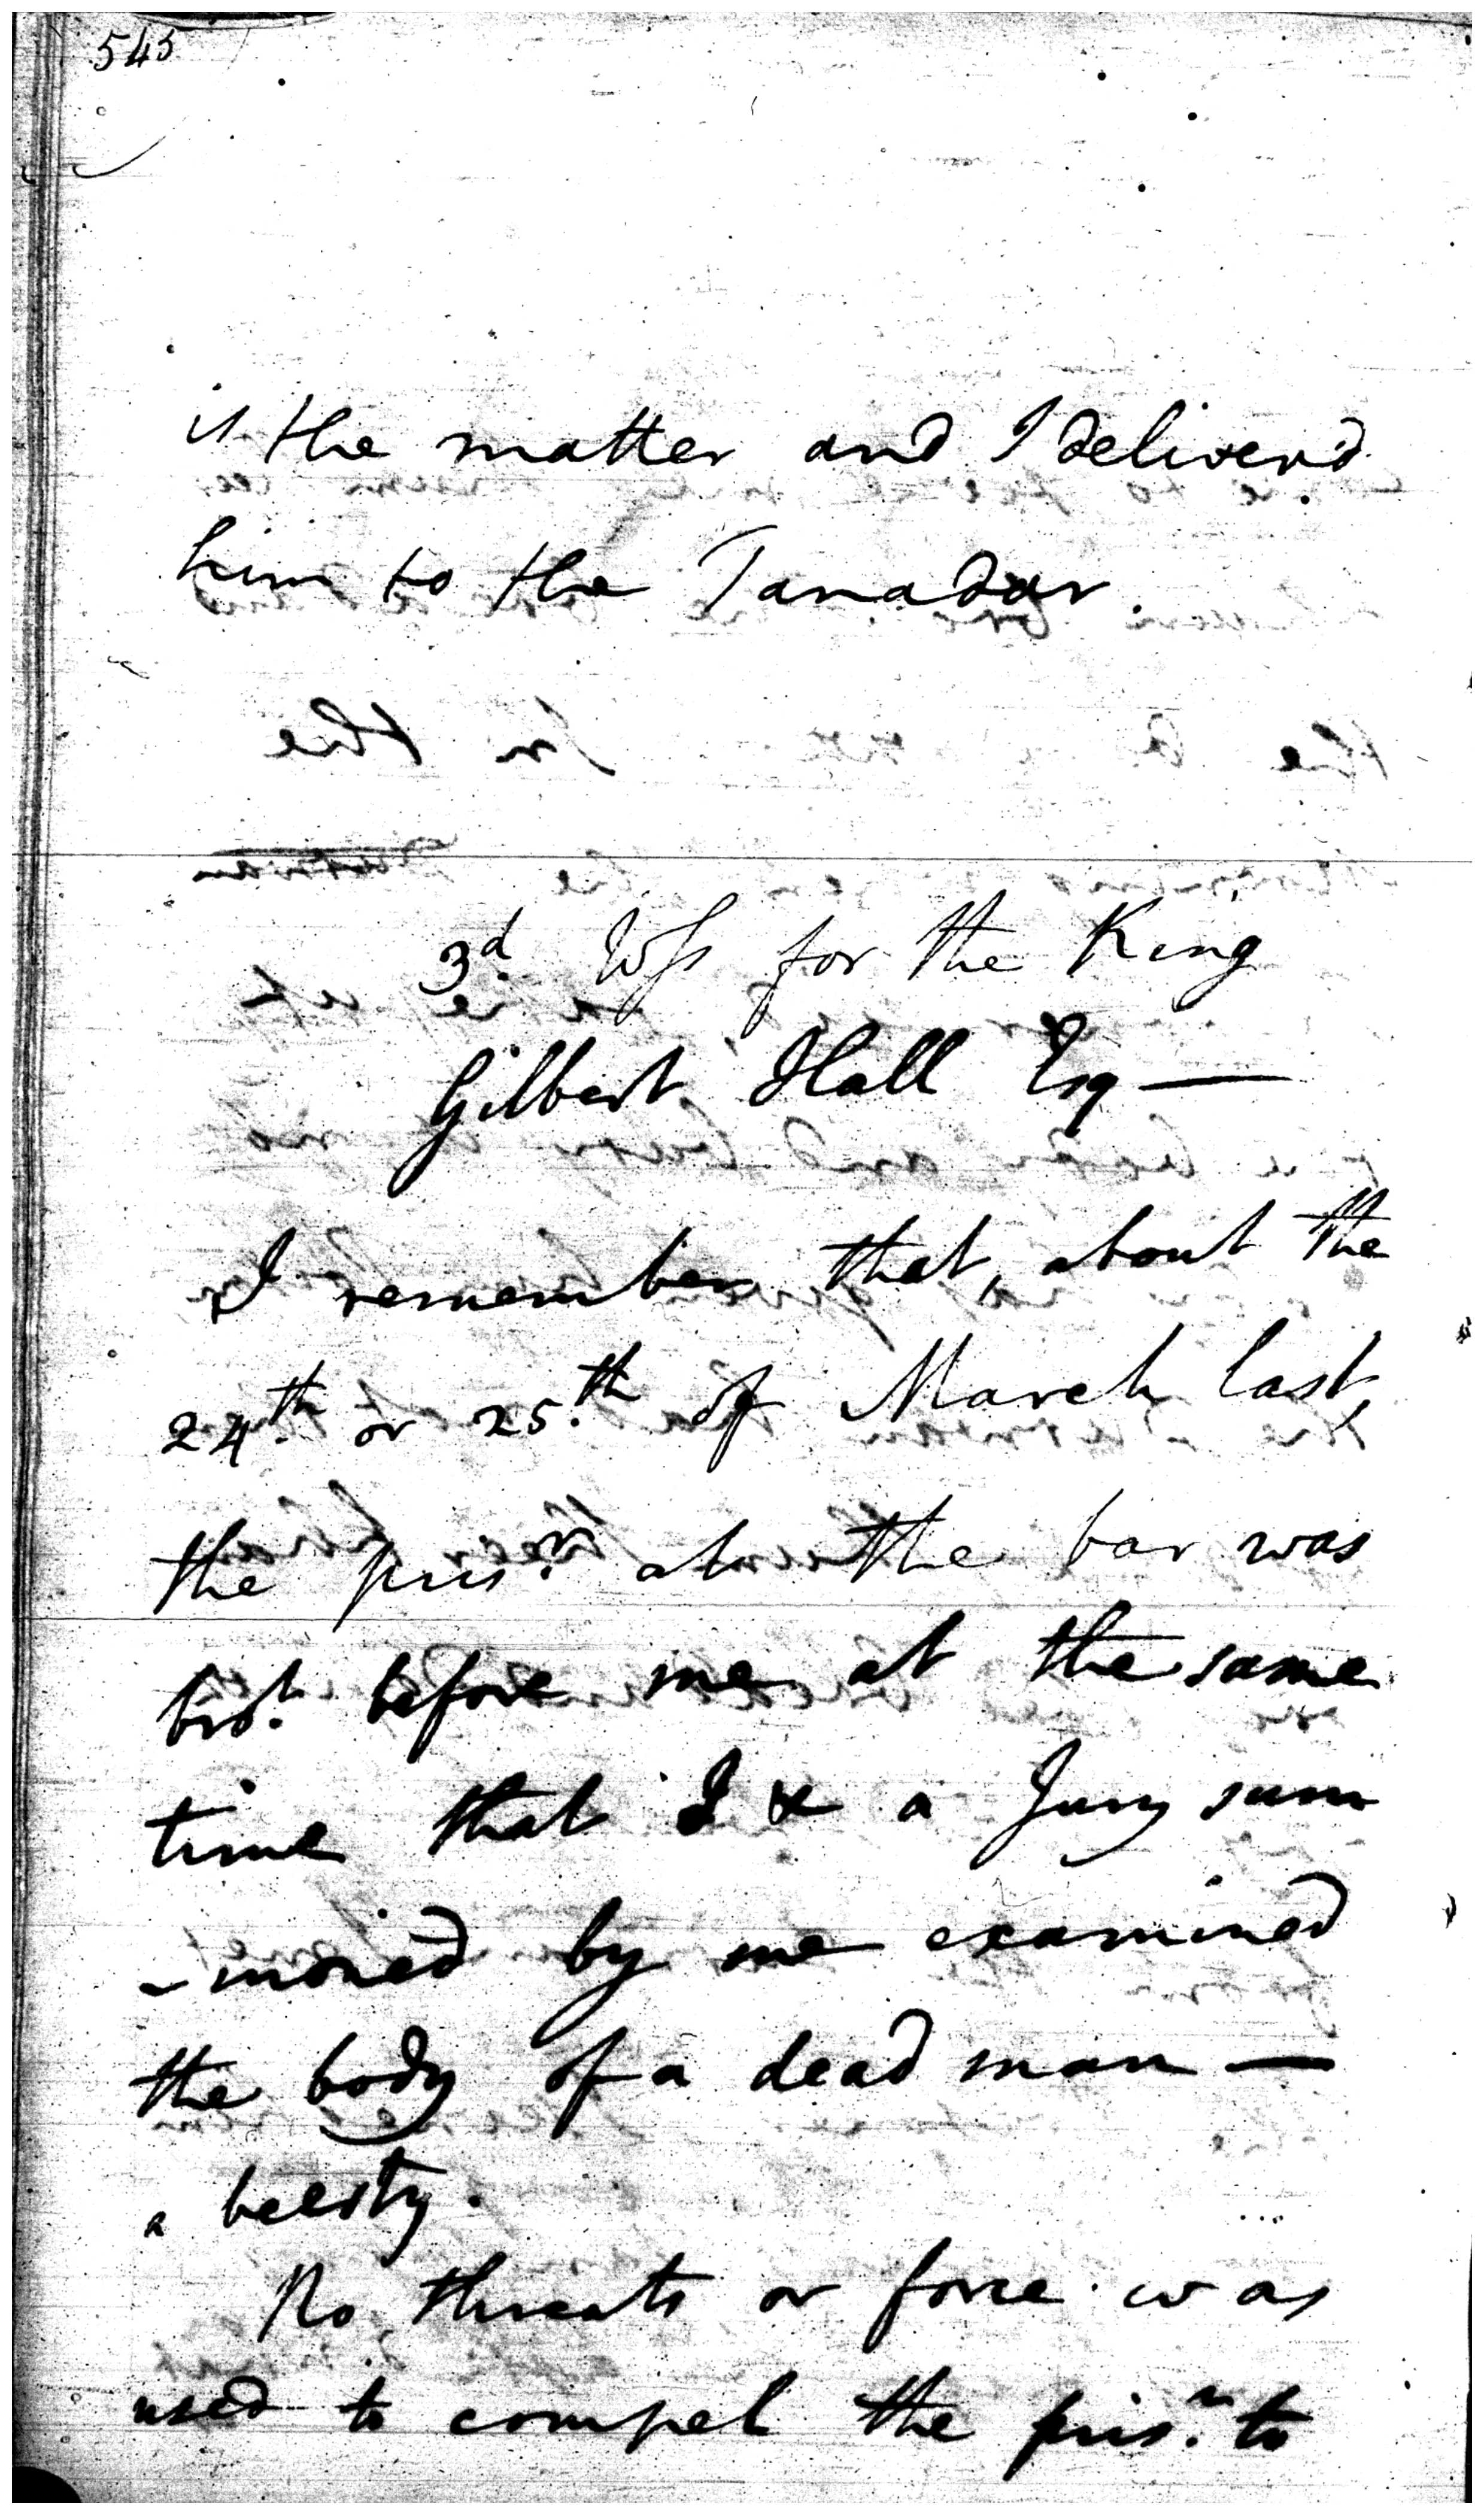 545
is the matter and I deliverd
him to the Tanadar.
3d. Wss for the King
Gilbert Hall Esq —
I remember that, about the
24th. or 25th. of March last,
the prisr. at the bar was
brot. before me at the same
time that I & a Jury sum
- moned by me examined
the body of a dead man —
a beesty.
No threats or force was
used to compel the prisr. to